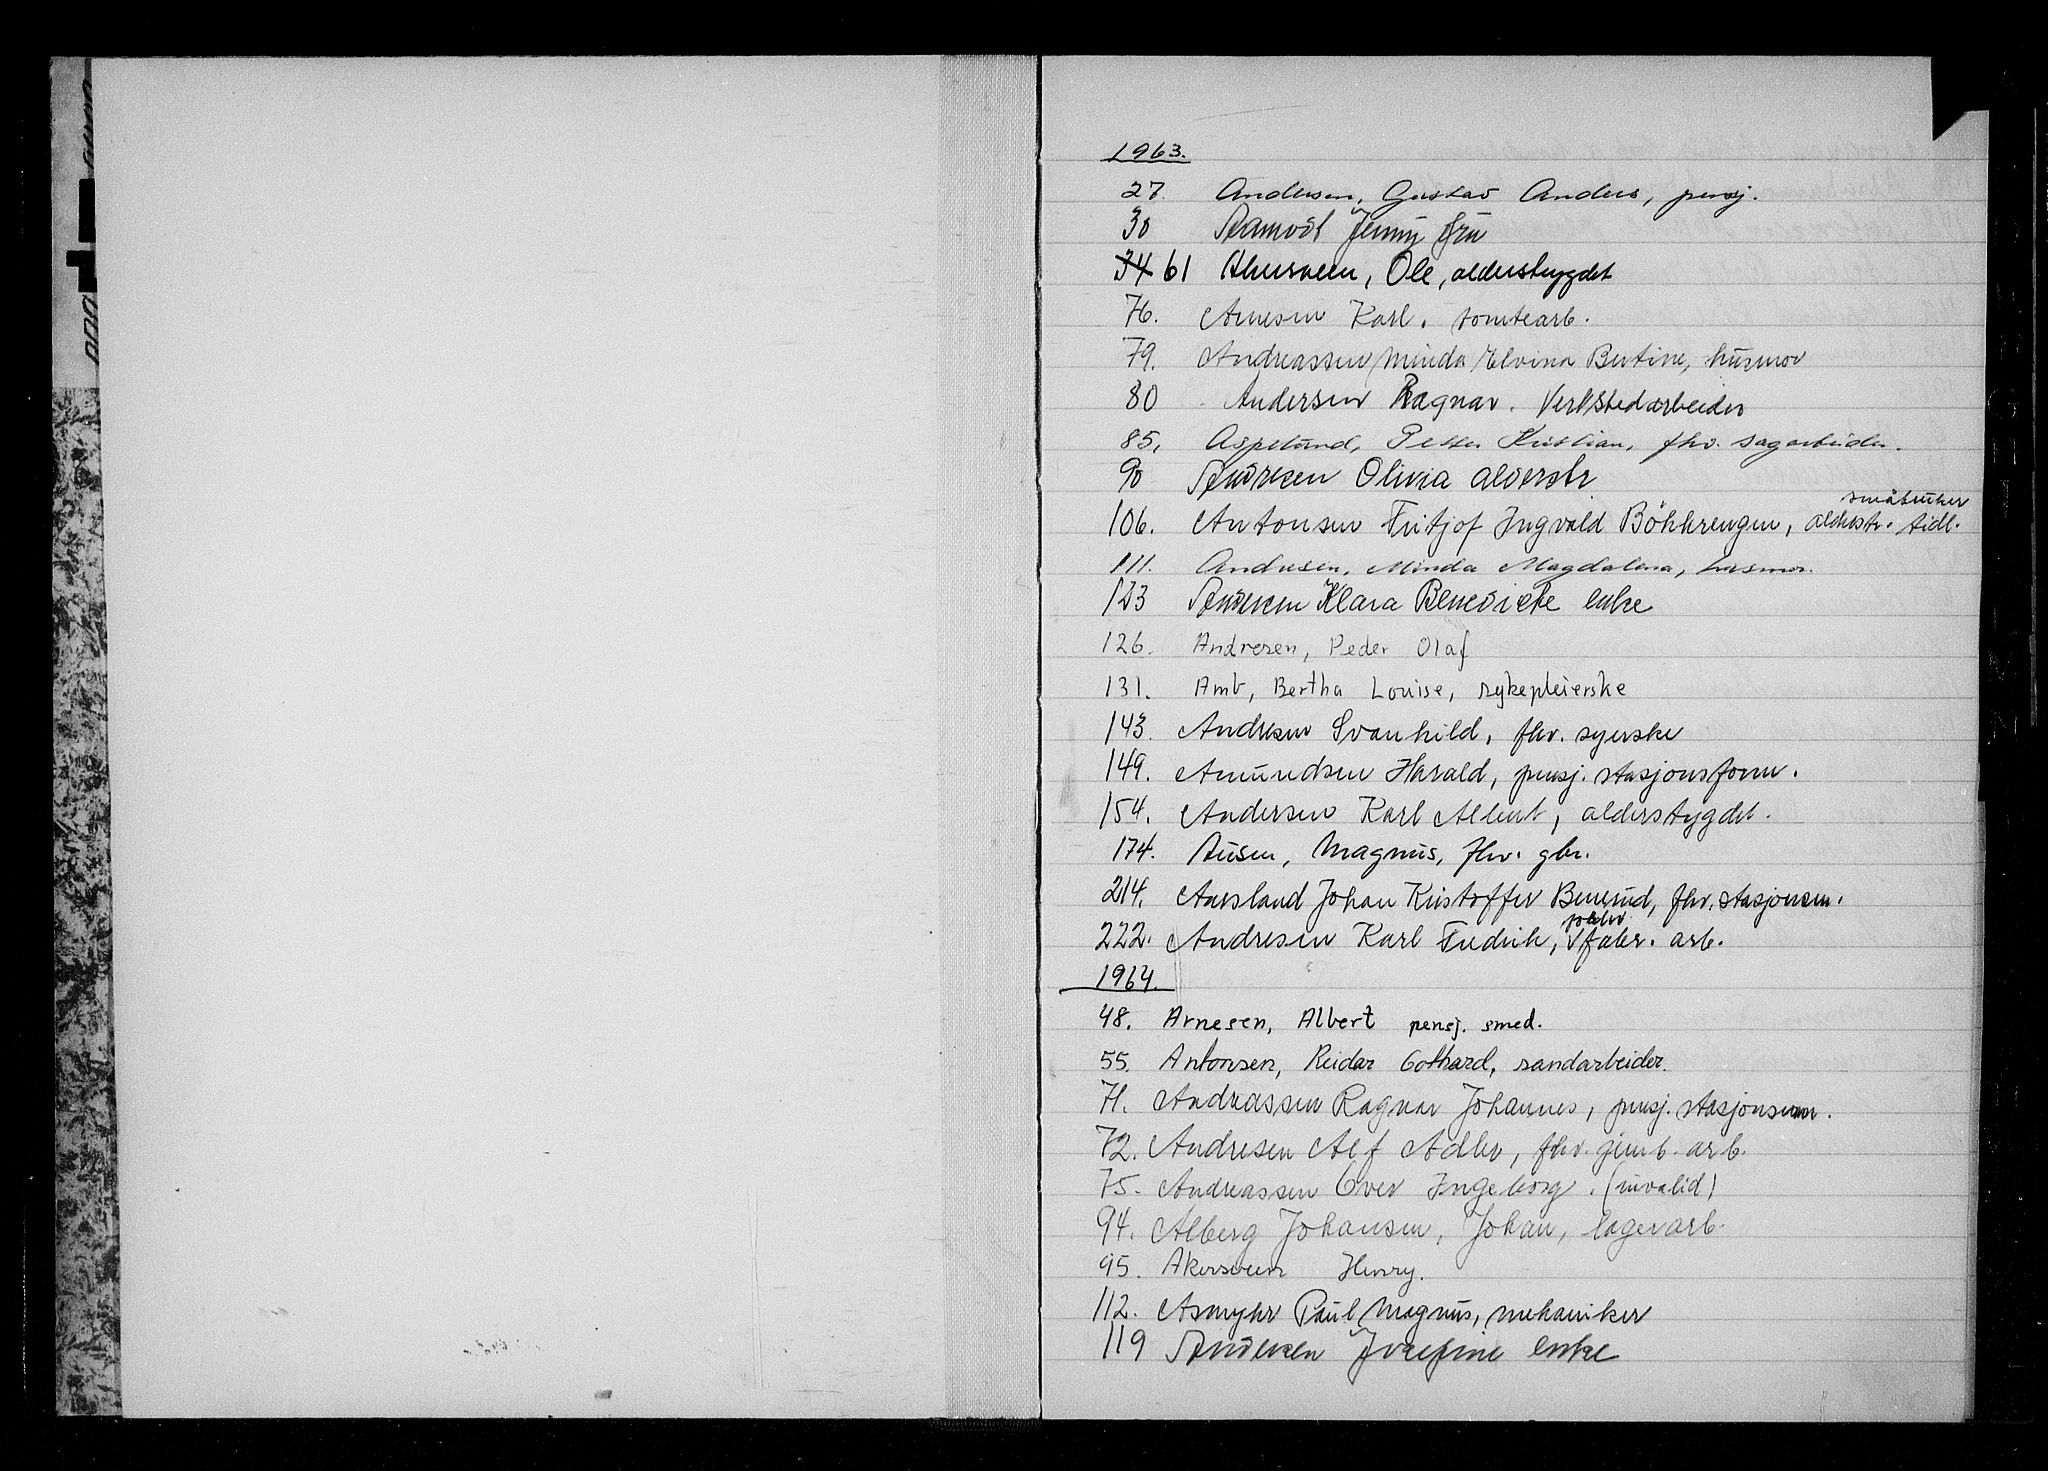 1963.
27. Andersen, Gustav Anders, pensj.
30 Aamodt Jenny fru
34 61 Akersveen, Ole, alderstrygdet
76. Arnesen Karl. tomtearb.
79. Andreassen Minda Elvina Bertine, husmor
80 Andersen Ragnar. Verkstedarbeider
85. Aspelund, Petter Kristian, fhv. sagarbeider.
90 Andresen Olivia alderstr
småbruker
106. Antonsen Fritjof Ingvald Böhkrengen, alderstr. tidl.
111. Andresen, Minda Magdalena, husmor.
123 Andersen Klara Benedicte enke
126. Andresen, Peder Olaf
131. Amb, Bertha Louise, sykepleierske
143. Andresen Svanhild, fhv. syerske
149. Amundsen Harald, pensj. stasjonsform.
154. Andersen Karl Albert, alderstygdet.
174. Ausen, Magnus, fhv. gbr.
214. Aarsland Johan Kristoffer Benerud, fhv. stasjonsm.
222. Andresen Karl Fredrik, fabr. arb.
1964.
48. Arnesen, Albert pensj. smed.
55. Antonsen, Reidar Gothard, sandarbeider.
71. Andreassen Ragnar Johannes, pensj. stasjonsm.
72. Andresen Alf Adler, fhv. jernb. arb.
75. Andreassen Over Ingeborg. (invalid)
94. Alberg Johansen, Johan, lagerarb.
95. Akersveen Henry.
112. Asmyhr Paul Magnus, mekaniker
119 Andersen Josefine enke